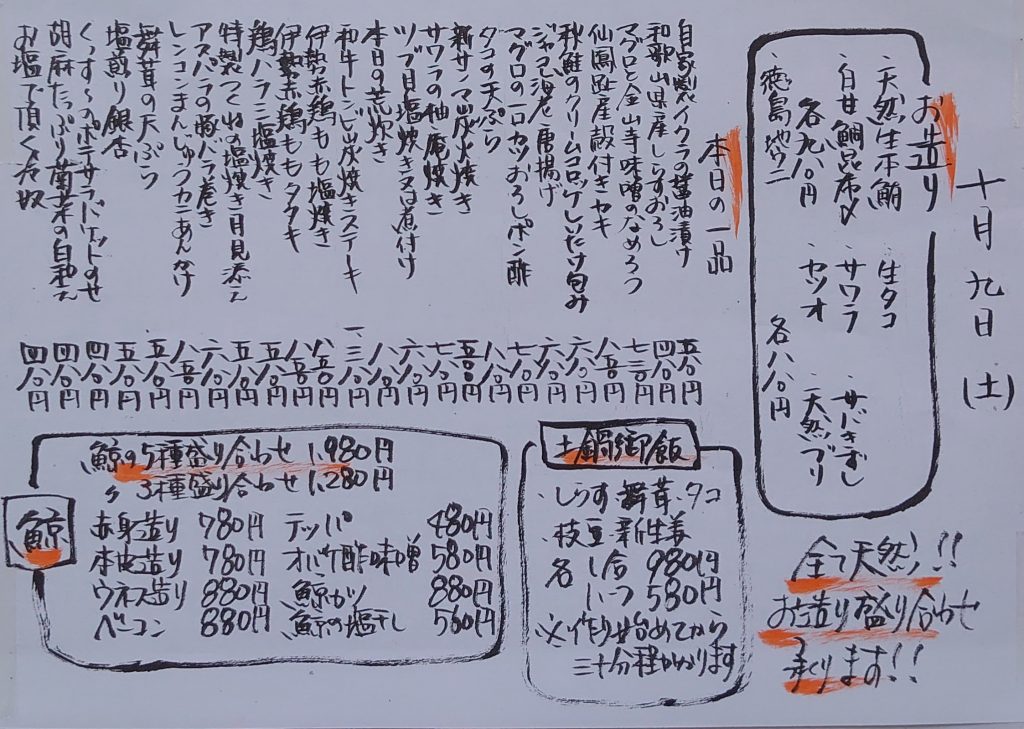 十月九日(土)
お造り
・天然生本鮪 ・生タコ
・白甘鯛昆布〆 ・サワラ ・サバきずし
各九八〇円 ・カツオ ・天然ブリ
・徳島地ウニ 各八八〇円
全て天然!!
お造り盛り合わせ
承ります!!
本日の一品
自家製イクラの醤油漬け 五八〇円
和歌山県産しらすおろし 四八〇円
マグロと金山寺味噌のなめろう 七三〇円
仙鳳趾産殻付きカキ 八五〇円
秋鮭のクリームコロッケしいたけ包み 六八〇円
ジャコ海老唐揚げ 六八〇円
マグロの一口カツおろしポン酢 七八〇円
タコの天ぷら 八八〇円
新サンマ炭火焼き 五五〇円
サワラの柚庵焼き 七八〇円
ツブ貝塩焼き又は煮付け 六八〇円
本日の荒炊き 八八〇円
和牛トンビ炭焼きステーキ 一、三八〇円
伊勢赤鶏もも塩焼き 八五〇円
伊勢赤鶏ももタタキ 八五〇円
鶏ハラミ塩焼き 五八〇円
特製つくねの塩焼き月見添え 五八〇円
アスパラの豚バラ巻き 六八〇円
レンコンまんじゅうカニあんかけ 八五〇円
舞茸の天ぷら 五八〇円
塩煎り銀杏 五八〇円
ポテサラバゲットのせ 四八〇円
胡麻たっぷり菊菜の白和え 四八〇円
お塩で頂く冷奴 四八〇円
土鍋御飯
・しらす・舞茸・タコ
・枝豆・新生姜
各 1合 980円
1/2 580円
※作り始めてから
三十分程かかります
鯨
鯨の5種盛り合わせ 1,980円
〃 3種盛り合わせ 1,280円
赤身造り 780円 テッパ 480円
本皮造り 780円 オバケ酢味噌 580円
ウネス造り 880円 鯨カツ 880円
ベーコン 880円 鯨の塩干し 560円